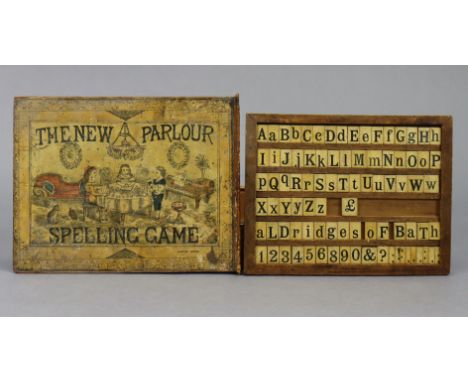 THE NEW PARLOUR
SPELLING GAME
AaBbCcDdEeFfGgHh
IiJjKkLlMmNnOoP
pQqRrSsTtUuVvWw
XxYyZz £
aLDridges oF BaTh
1234567890&?